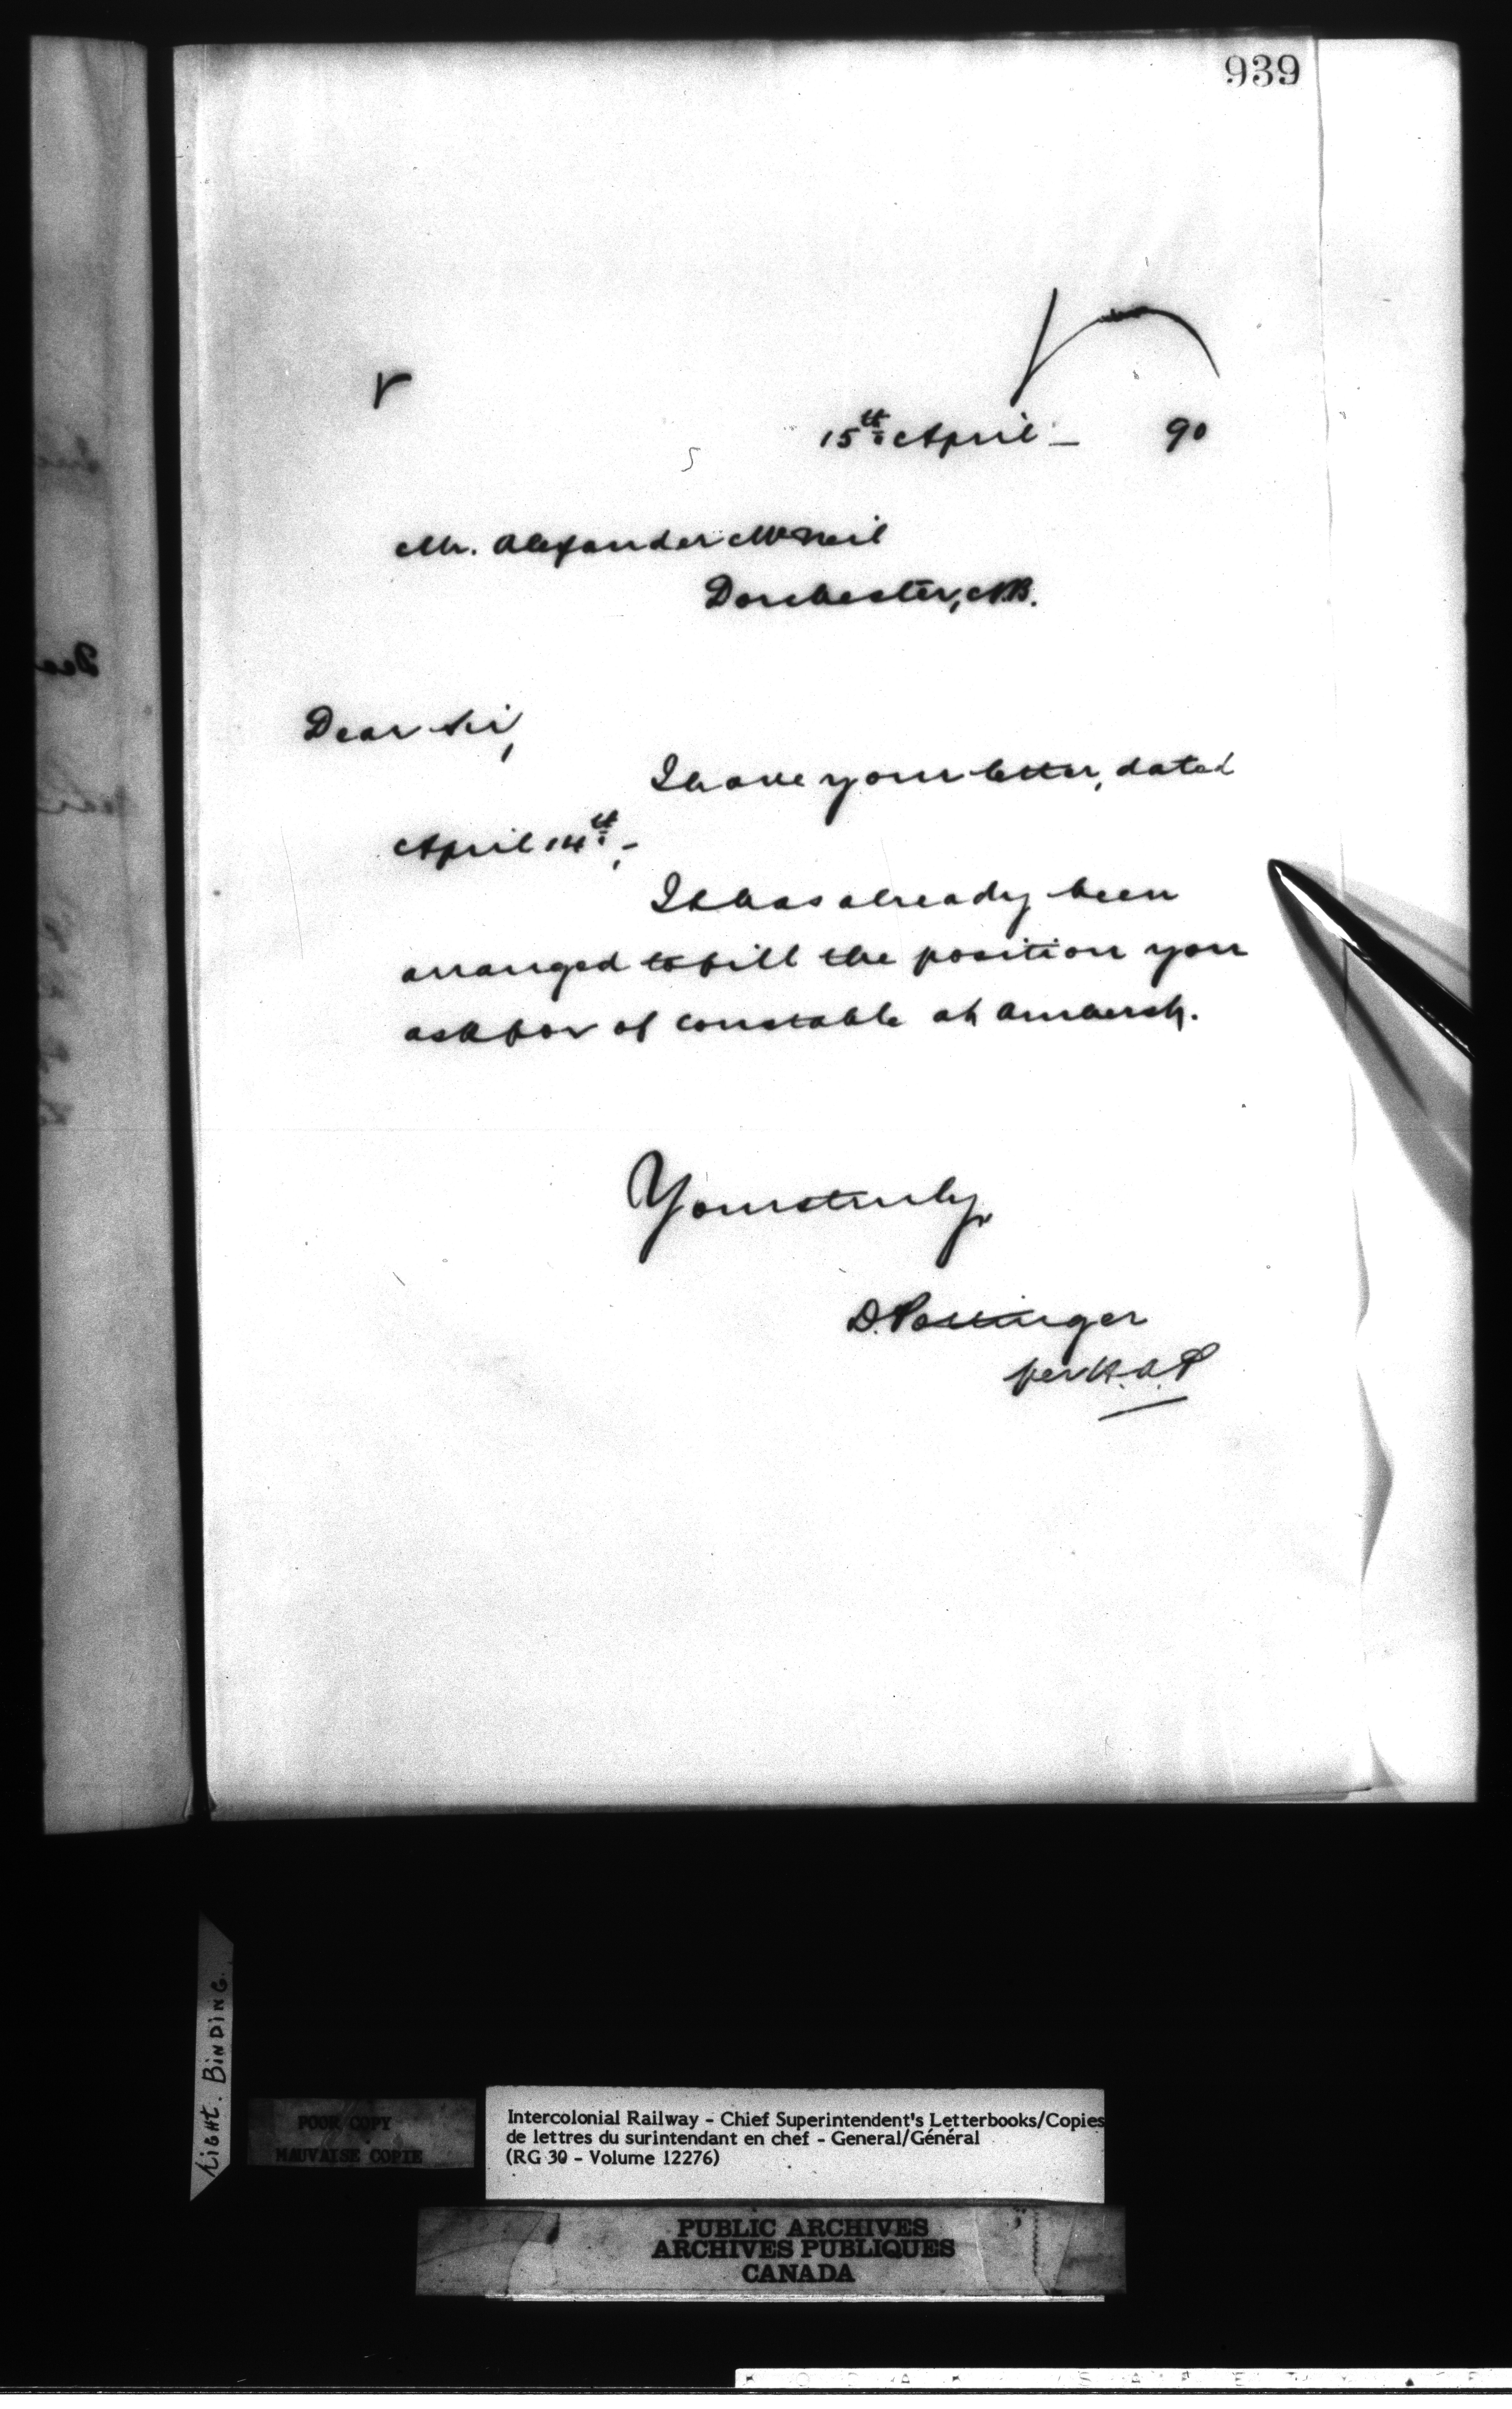 939
15th April – 90
Mr. Alexander McNeil
Dorchester, N.B.
Dear Sir,
I have your letter, dated
April 14th, –
It has already been
arranged to fill the position you
ask for of constable at Amherst.
Yours truly,
D. Pottinger
per H.A.P
LIGHT. BINDING.
POOR COPY
MAUVAISE COPIE
Intercolonial Railway - Chief Superintendent's Letterbooks/Copies
de lettres du surintendant en chef - General/Général
(RG 30 - Volume 12276)
PUBLIC ARCHIVES
ARCHIVES PUBLIQUES
CANADA